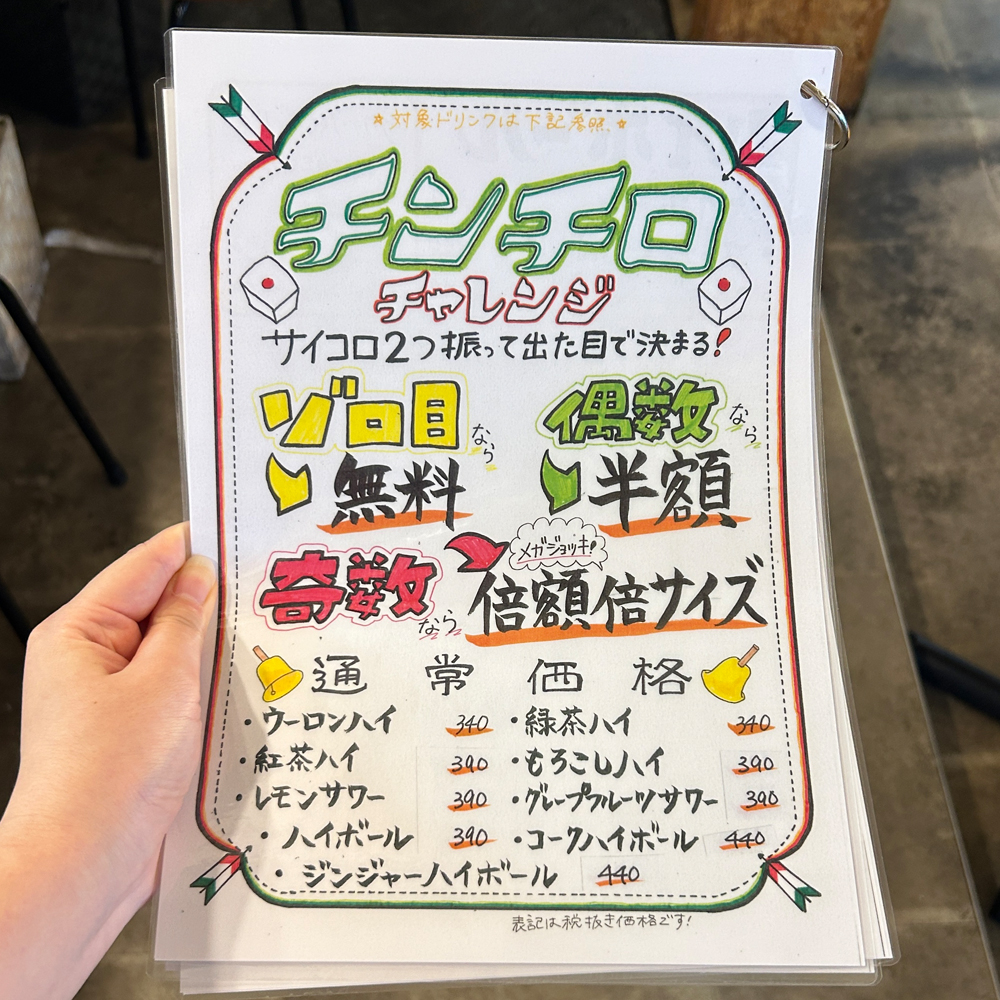 ★対象ドリンクは下記参照、★
チンチロ
チャレンジ
サイコロ2つ振って出た目で決まる!
ゾロ目なら
無料
偶数なら
半額
奇数なら
メガジョッキ!
倍額倍サイズ
通常価格
・ウーロンハイ 340
・緑茶ハイ 340
・紅茶ハイ 390
・もろこしハイ 390
・レモンサワー 390
・グレープフルーツサワー 390
・ハイボール 390
・コークハイボール 440
・ジンジャーハイボール 440
表記は税抜き価格です!